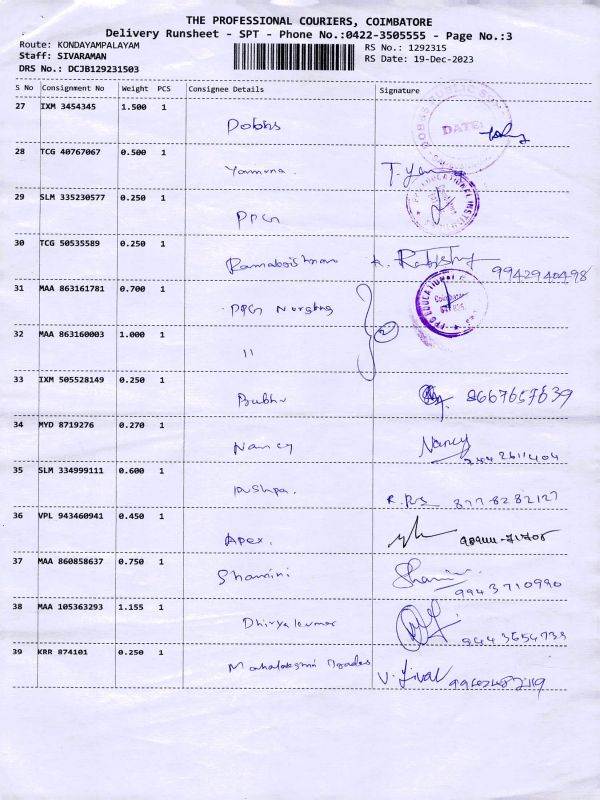 THE PROFESSIONAL COURIERS, COIMBATORE
Delivery Runsheet - SPT - Phone No.:0422-3505555 - Page No.:3
Route: KONDAYAMPALAYAM
Staff: SIVARAMAN
DRS No.: DCJB129231503
RS No.: 1292315
RS Date: 19-Dec-2023
S No Consignment No Weight PCS Consignee Details Signature
27 IXM 3454345 1.500 1
Dobbs
DATE:
28 TCG 40767067 0.500 1
Yamuna.
29 SLM 335230577 0.250 1
PPG
30 TCG 50535589 0.250 1
9942940498
31 MAA 863161781 0.700 1
PPG Nursing
2
32 MAA 863160003 1.000 1
11
33 IXM 505528149 0.250 1
Prabhu 8667657639
34 MYD 8719276 0.270 1
Nancy Nancy
2611404
35 SLM 334999111 0.600 1
Pushpa. 8778282127
36 VPL 943460941 0.450 1
Apex.
37 MAA 860858637 0.750 1
Shamini
9943710990
38 MAA 105363293 1.155 1
Dhivyakumar 9443654739
39 KRR 874101 0.250 1
Mahalakshmi